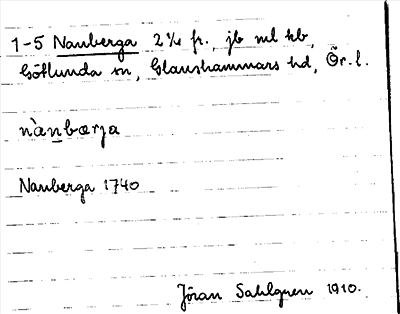 1-5 Nauberga 2 ¼ fr., jb ml kb,
Götlunda sn, Glanshammars hd, Ör. l.
nànbærja
Nauberga 1740
Jöran Sahlgren 1910.